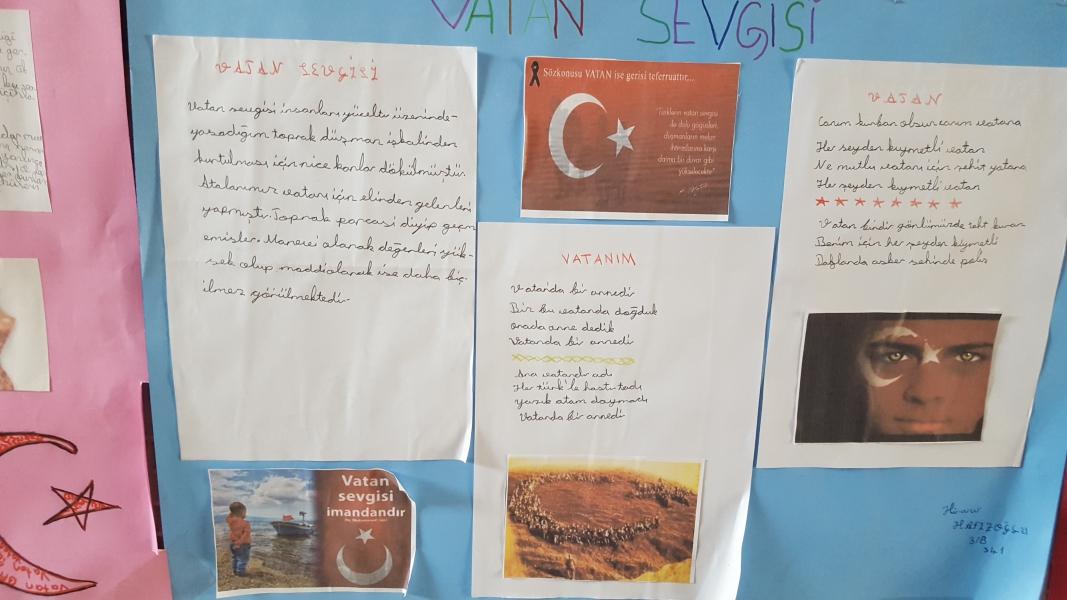 VATAN SEVGİSİ
VATAN SEVGİSİ
Vatan sevgisi insanları yücelti üzerinde-
yaşadığım toprak düşman işkalinden
kurtulması için nice kanlar dökülmüştür.
Atalarımız vatanı için elinden gelenleri
yapmıştı. Toprak parçası diyip geçm
emişler. Manevi olarak değerleri yük-
sek olup maddi olarak ise daha biç-
ilmez görülmektedir.
Sözkonusu VATAN ise gerisi teferruattır...
"Türklerin vatan sevgisi
ile dolu göğüsleri,
düşmanların melun
ihtiraslarına karşı
daima bir duvar gibi
yükselecektir."
VATANIM
Vatanda bir annedir
Biz bu vatanda doğduk
orada anne dedik
Vatanda bir annedi
Ana vatandır adı
Her türk'le hastı tadı
yazık atam doymadı
Vatanda bir annedi
VATAN
Canım kurban olsun canım vatana
Her şeyden kıymetli vatan
Ne mutlu vatanı için şehit yatana
Her şeyden kıymetli vatan
Vatan bindir gönlümüzde taht kuran
Benim için her şeyden kıymetli
Dağlarda asker şehinde polis
Vatan
sevgisi
imandandır
HAFIZOĞLU
3/B
341